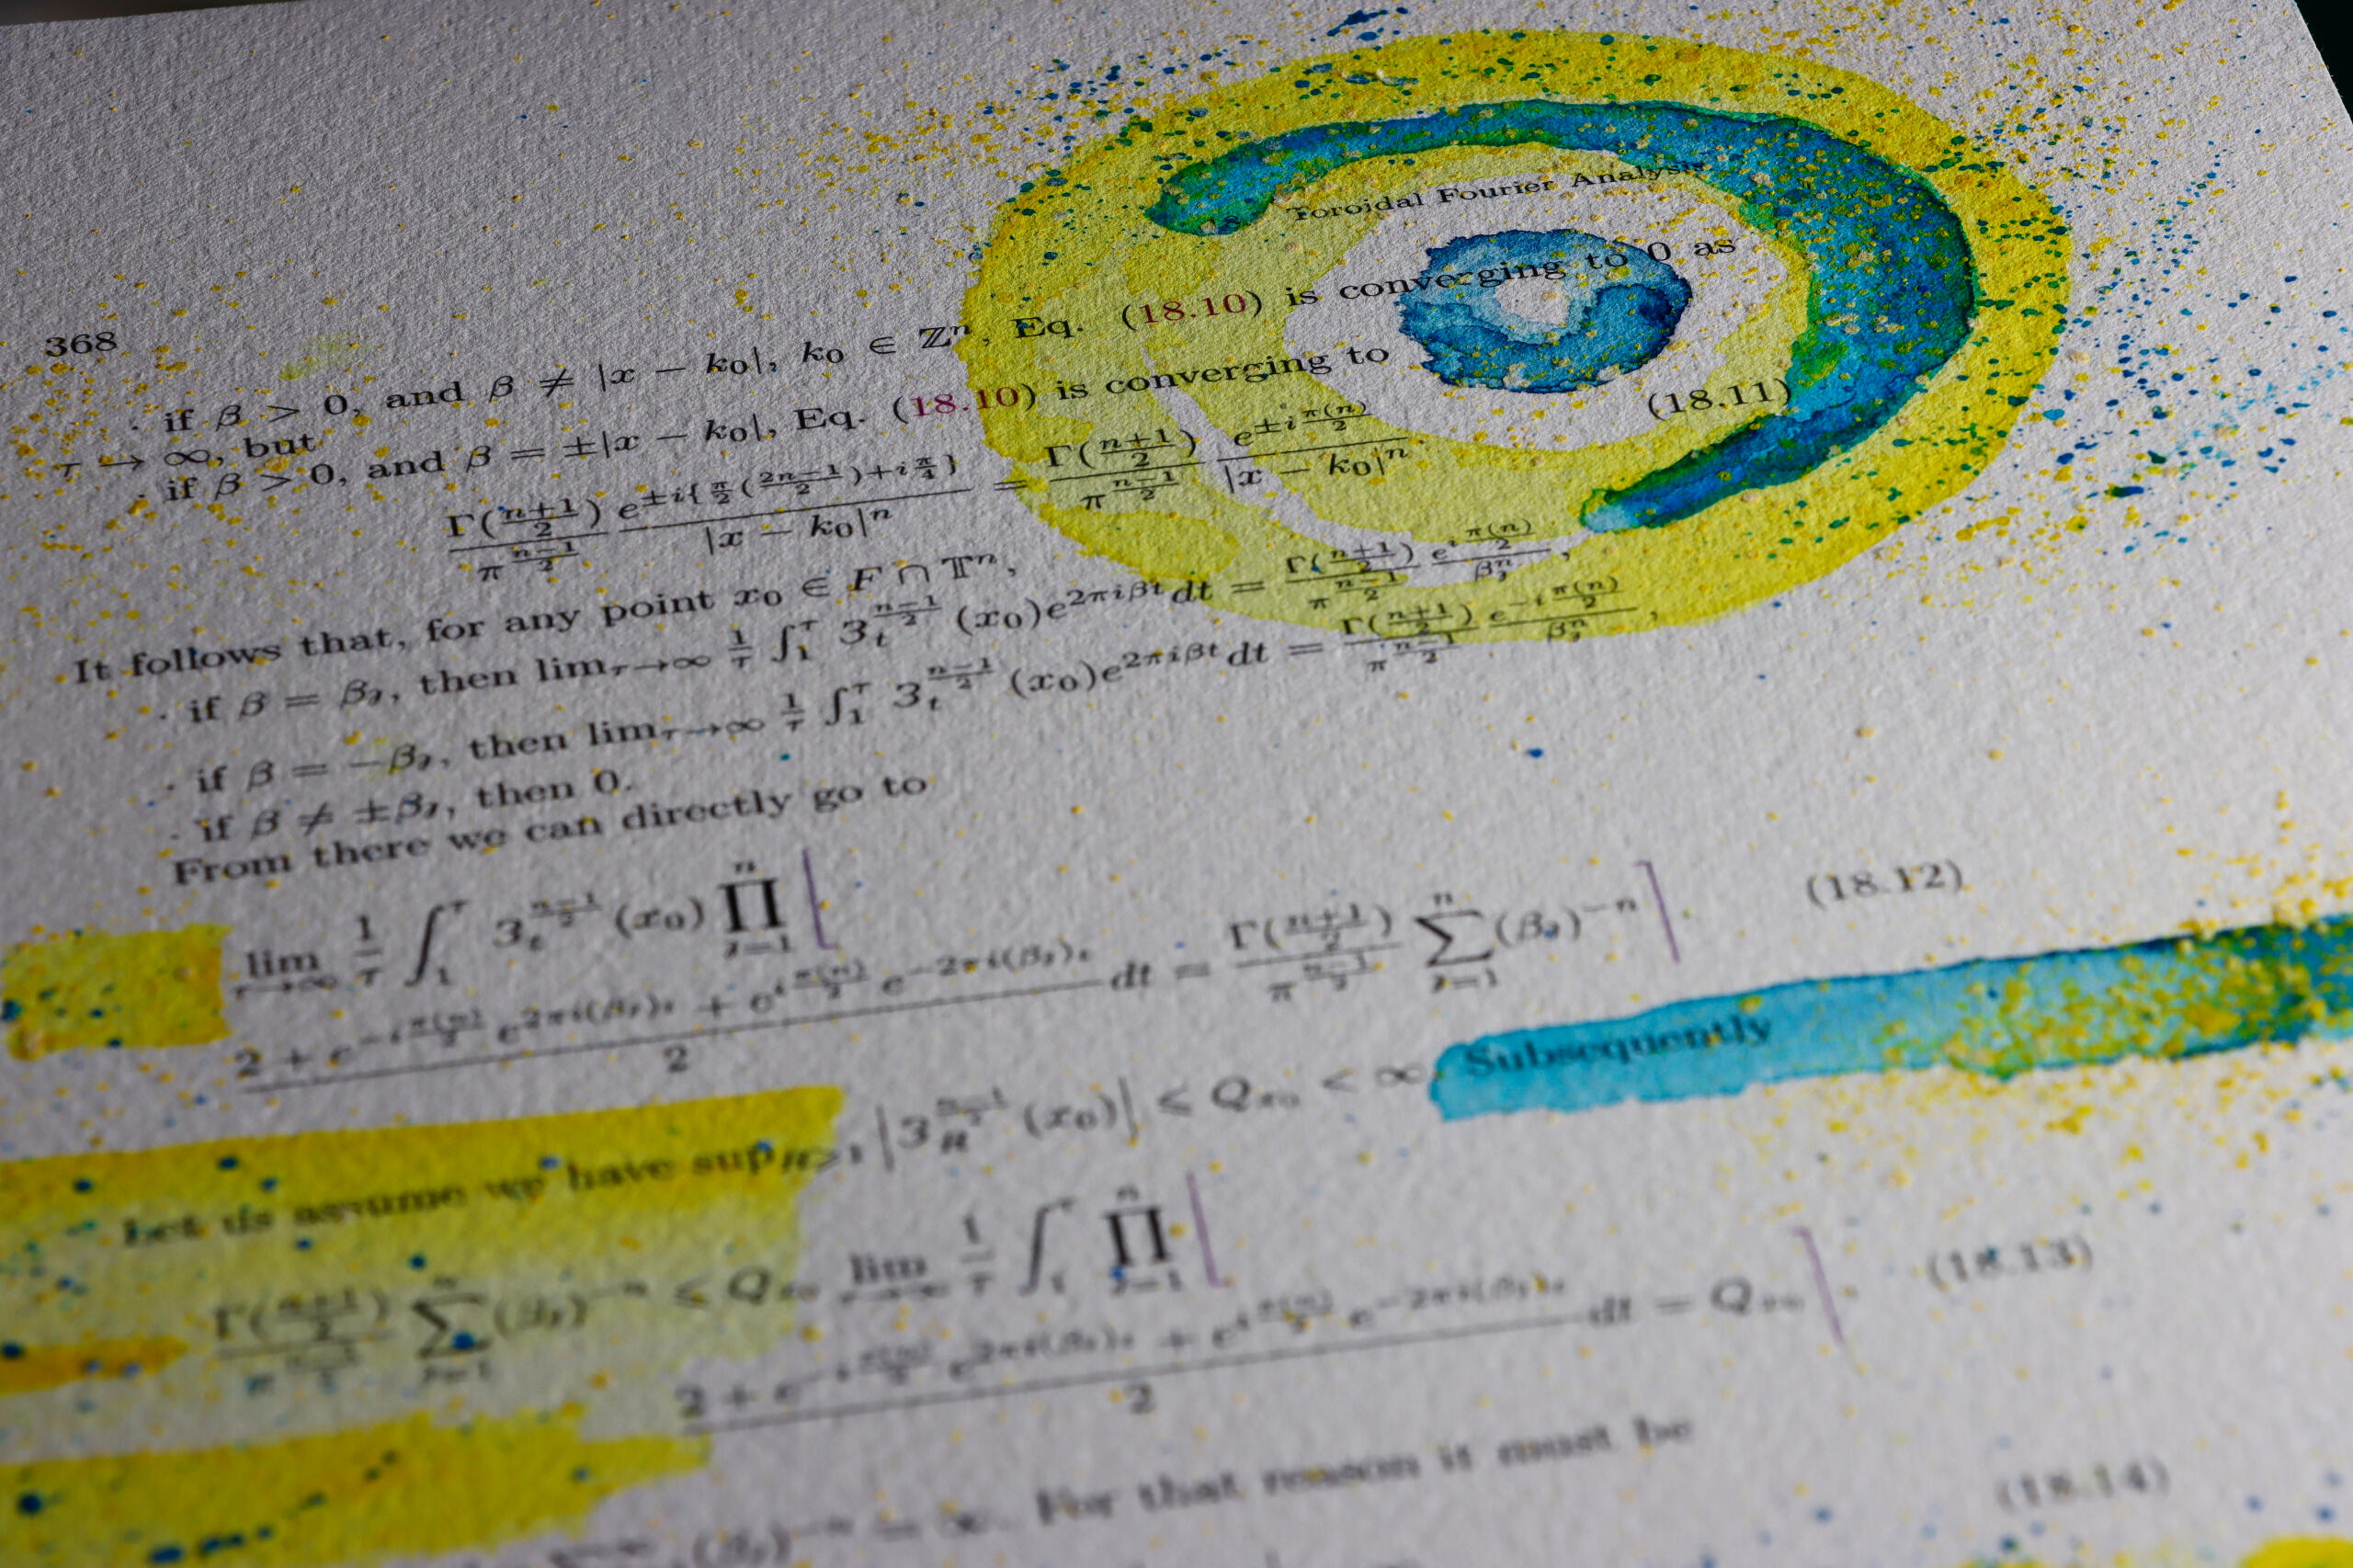 368
Toroidal Fourier Analysis
· if β > 0, and β ≠ |x − k₀|, k₀ ∈ ℤⁿ, Eq. (18.10) is converging to 0 as
τ → ∞, but
· if β > 0, and β = ±|x − k₀|, Eq. (18.10) is converging to
Γ((n+1)/2)/π^((n−1)/2) e^(±i{π/2((2n−1)/2)+iπ/4})/|x − k₀|ⁿ = Γ((n+1)/2)/π^((n−1)/2) e^(±iπ(n)/2)/|x − k₀|ⁿ. (18.11)
It follows that, for any point x₀ ∈ F ∩ 𝕋ⁿ,
· if β = βⱼ, then lim_τ→∞ 1/τ ∫₁^τ 3ₜ^((n−1)/2) (x₀)e^(2πiβt) dt = Γ((n+1)/2)/π^((n−1)/2) e^(iπ(n)/2)/βⱼⁿ,
· if β = −βⱼ, then lim_τ→∞ 1/τ ∫₁^τ 3ₜ^((n−1)/2) (x₀)e^(2πiβt) dt = Γ((n+1)/2)/π^((n−1)/2) e^(−iπ(n)/2)/βⱼⁿ,
· if β ≠ ±βⱼ, then 0.
From there we can directly go to
lim_τ→∞ 1/τ ∫₁^τ 3ₜ^((n−1)/2) (x₀) ∏_(j=1)^n [
(2 + e^(−iπ(n)/2) e^(2πi(βⱼ)ₜ) + e^(iπ(n)/2) e^(−2πi(βⱼ)ₜ))/2 dt = Γ((n+1)/2)/π^((n−1)/2) ∑_(j=1)^n (βⱼ)^(−n)]. (18.12)
Let us assume we have sup_(R>1) |3_R^((n−1)/2) (x₀)| ≤ Q_x₀ < ∞. Subsequently
Γ((n+1)/2)/π^((n−1)/2) ∑_(j=1)^n (βⱼ)^(−n) ≤ Q_x₀ lim_τ→∞ 1/τ ∫₁^τ ∏_(j=1)^n [
(2 + e^(−iπ(n)/2) e^(2πi(βⱼ)ₜ) + e^(iπ(n)/2) e^(−2πi(βⱼ)ₜ))/2 dt = Q_x₀]. (18.13)
(βⱼ)^(−n) = ∞. For that reason it must be
(18.14)